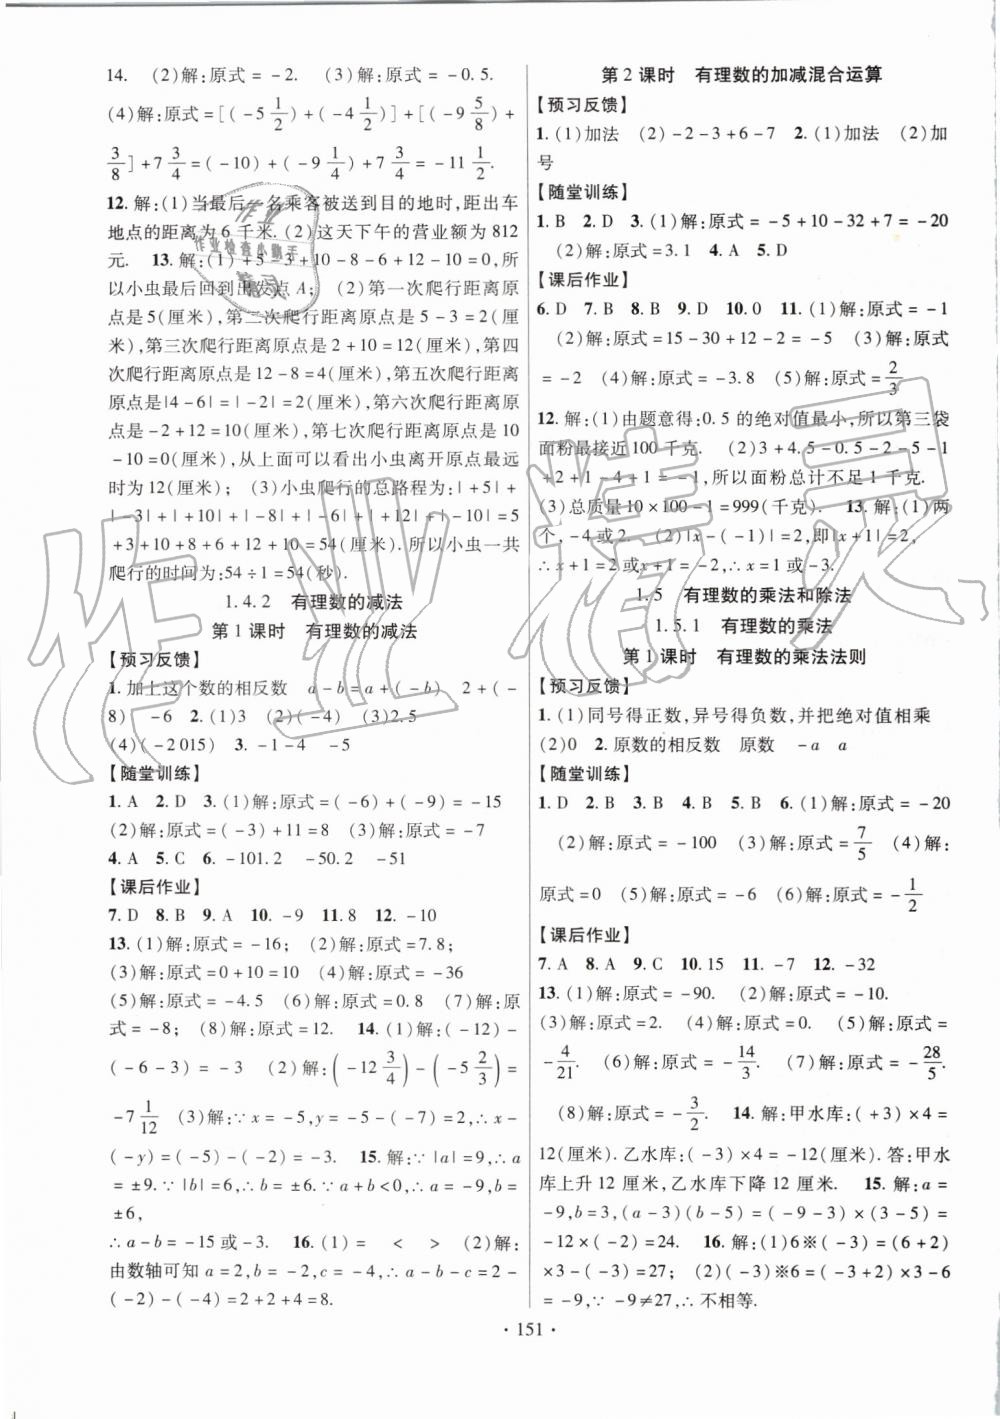 14. (2)解:原式=-2. (3)解:原式=-0.5.
(4)解:原式=[(-5 1/2)+(-4 1/2)]+[(-9 5/8)+
3/8]+7 3/4=(-10)+(-9 1/4)+7 3/4=-11 1/2.
12.解:(1)当最后一名乘客被送到目的地时,距出车
地点的距离为6千米.(2)这天下午的营业额为812
元. 13.解:(1)+5-3+10-8-6+12-10=0,所
以小虫最后回到出发点A; (2)第一次爬行距离原
点是5(厘米),第二次爬行距离原点是5-3=2(厘
米),第三次爬行距离原点是2+10=12(厘米),第四
次爬行距离原点是12-8=4(厘米),第五次爬行距离
原点是|4-6|=|-2|=2(厘米),第六次爬行距离原
点是-2+12=10(厘米),第七次爬行距离原点是10
-10=0(厘米),从上面可以看出小虫离开原点最远
时为12(厘米); (3)小虫爬行的总路程为:|+5|+
|-3|+|+10|+|-8|+|-6|+|+12|+|-10|=5
+3+10+8+6+12+10=54(厘米).所以小虫一共
爬行的时间为:54÷1=54(秒).
1.4.2 有理数的减法
第1课时 有理数的减法
【预习反馈】
1.加上这个数的相反数 a-b=a+(-b) 2+(-
8) -6 2.(1)3 (2)(-4) (3)2.5
(4)(-2015) 3.-1-4 -5
【随堂训练】
1.A 2.D 3.(1)解:原式=(-6)+(-9)=-15
(2)解:原式=(-3)+11=8 (3)解:原式=-7
4.A 5.C 6.-101.2 -50.2 -51
【课后作业】
7.D 8.B 9.A 10.-9 11.8 12.-10
13.(1)解:原式=-16; (2)解:原式=7.8;
(3)解:原式=0+10=10 (4)解:原式=-36
(5)解:原式=-4.5 (6)解:原式=0.8 (7)解:原
式=-8; (8)解:原式=12. 14.(1)解:(-12)-
(-6-3)=-3 (2)解:(-12 3/4)-(-5 2/3)=
-7 1/12 (3)解:∵x=-5,y=-5-(-7)=2,∴x-
(-y)=(-5)-(-2)=-3. 15.解:∵|a|=9,∴a
=±9.∵|b|=6,∴b=±6.∵a+b<0,∴a=-9,b=
±6,
∴a-b=-15或-3. 16.(1)= < > (2)解:
由数轴可知a=2,b=-2,c=-4,∴a-b-c=2-
(-2)-(-4)=2+2+4=8.
第2课时 有理数的加减混合运算
【预习反馈】
1.(1)加法 (2)-2-3+6-7 2.(1)加法 (2)加
号
【随堂训练】
1.B 2.D 3.(1)解:原式=-5+10-32+7=-20
(2)解:原式=3.1 4.A 5.D
【课后作业】
6.D 7.B 8.B 9.D 10.0 11.(1)解:原式=-1
(2)解:原式=15-30+12-2=-5 (3)解:原式
=-2 (4)解:原式=-3.8 (5)解:原式=2/3
12.解:(1)由题意得:0.5的绝对值最小,所以第三袋
面粉最接近100千克. (2)3+4.5-0.5-2-5-1
+2+1-4-1=-1,所以面粉总计不足1千克.
(3)总质量10×100-1=999(千克). 13.解:(1)两
个,-4或2. (2)|x-(-1)|=2,即|x+1|=2.
∴x+1=2或x+1=-2,∴x=1或-3.
1.5 有理数的乘法和除法
1.5.1 有理数的乘法
第1课时 有理数的乘法法则
【预习反馈】
1.(1)同号得正数,异号得负数,并把绝对值相乘
(2)0 2.原数的相反数 原数 -a a
【随堂训练】
1.D 2.B 3.B 4.B 5.B 6.(1)解:原式=-20
(2)解:原式=-100 (3)解:原式=7/5 (4)解:
原式=0 (5)解:原式=-6 (6)解:原式=-1/2
【课后作业】
7.A 8.A 9.C 10.15 11.-7 12.-32
13.(1)解:原式=-90. (2)解:原式=-10.
(3)解:原式=2. (4)解:原式=0. (5)解:原式=
-4/21. (6)解:原式=-14/3. (7)解:原式=-28/5.
(8)解:原式=-3/2. 14.解:甲水库:(+3)×4=
12(厘米).乙水库:(-3)×4=-12(厘米).答:甲水
库上升12厘米,乙水库下降12厘米. 15.解:a=
-9,b=3,(a-3)(b-5)=(-9-3)×(3-5)=
-12×(-2)=24. 16.解:(1)6※(-3)=(6+2)
×3-(-3)=27; (2)(-3)※6=(-3+2)×3-6
=-9,∵-9≠27,∴不相等.
·151·
作业精灵
作业
作业检查小助手
精灵